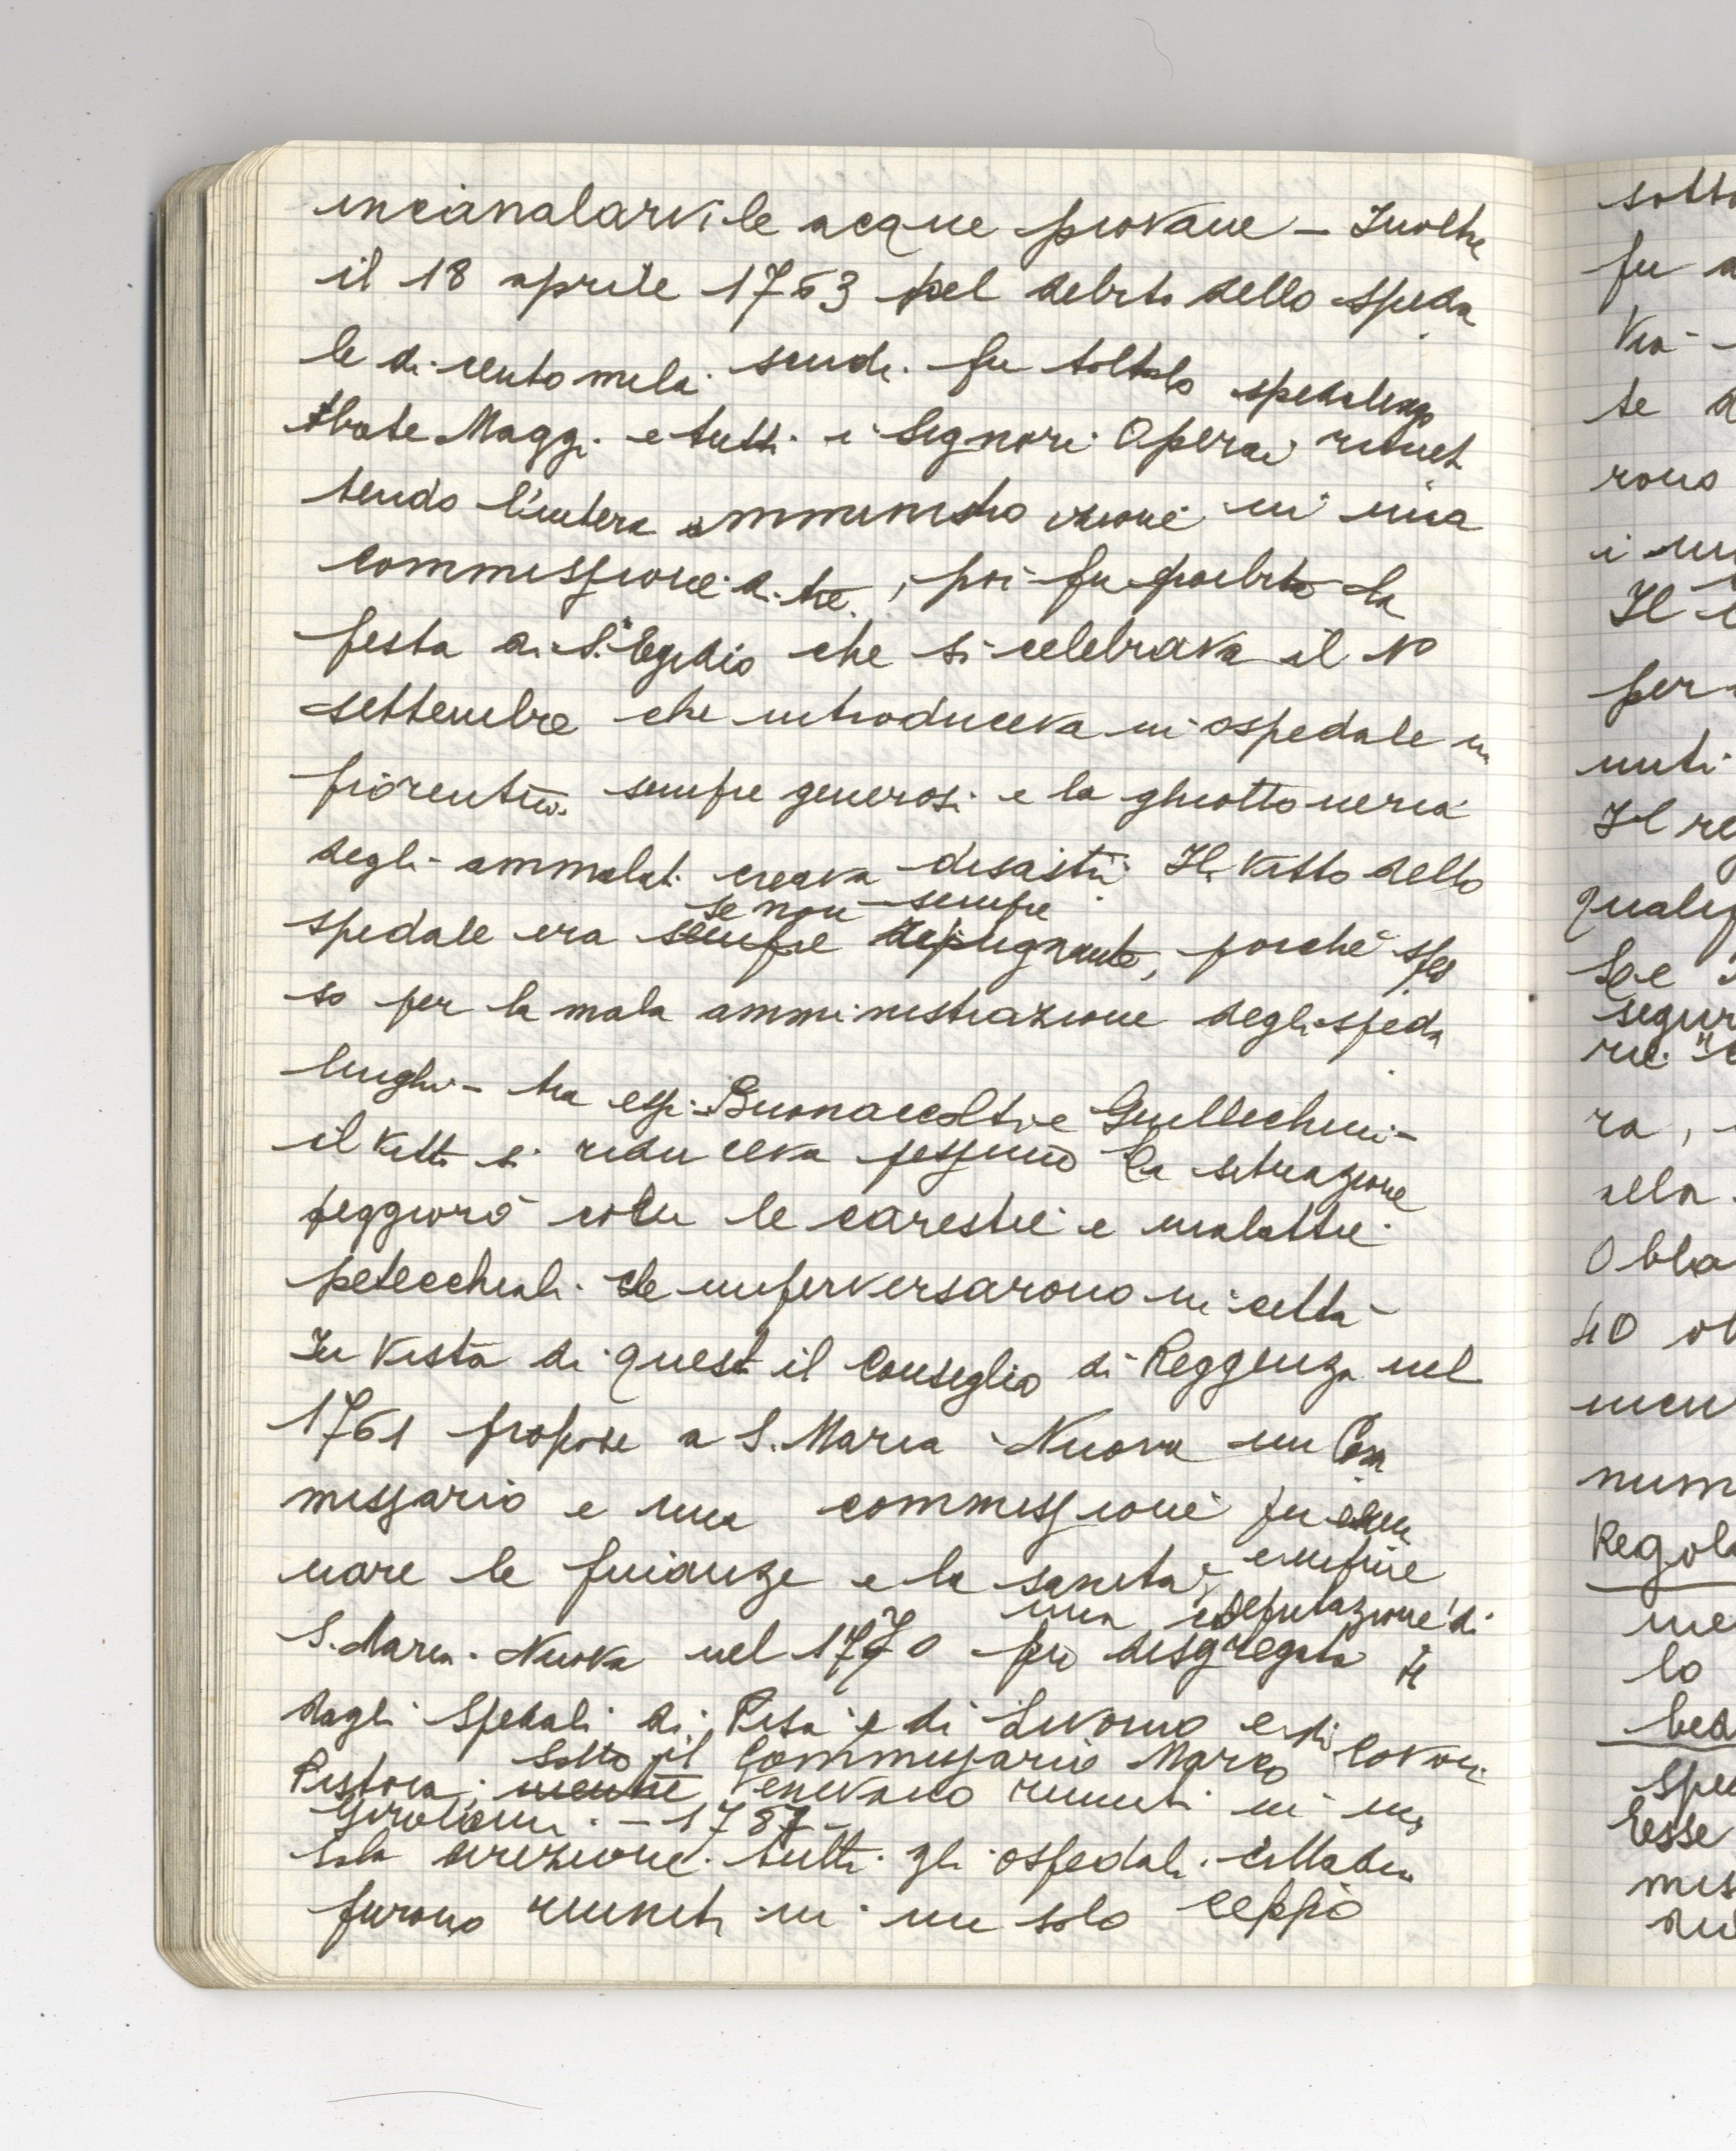 incanalarvi le acque piovane – Inoltre
il 18 aprile 1763 pel debito dello speda
le di cento mila scudi fu tolto lo spedalingo
Abate Maggi e tutti i Signori Operai rimet
tendo l'intera amministrazione in una
commissione di tre, poi fu proibita la
festa di S. Egidio che si celebrava il 1º
settembre che introduceva in ospedale
fiorentini sempre generosi e la ghiottoneria
degli ammalati creava disastri. Il vitto dello
se non sempre
spedale era sempre ripugnante, poiché spes
so per la mala amministrazione degli speda
linghi – tra essi Buonaccolti e Guellechini –
il vitto si riduceva pessimo la situazione
peggiorò colle carestie e malattie
petecchiali che imperversarono in città –
In vista di quest il Consiglio di Reggenza nel
1761 propose a S. Maria Nuova un Com
missario e una commissione per esami
nare le finanze e la sanità, e infine
una deputazione di
S. Maria Nuova nel 1770 fu disgregata
dagli Spedali di Pisa e di Livorno e di
Sotto il Commissario Marco Covoni
Pistoia; mentre venivano riuniti in una
Girolami – 1787 –
sola direzione tutti gli ospedali cittadini
furono riuniti in un solo ceppo
sotto
fu
Via –
te
rono
i
Il
per
nuti
Il re
ra,
alla
Obla
40
num
Regola
me
lo
mis